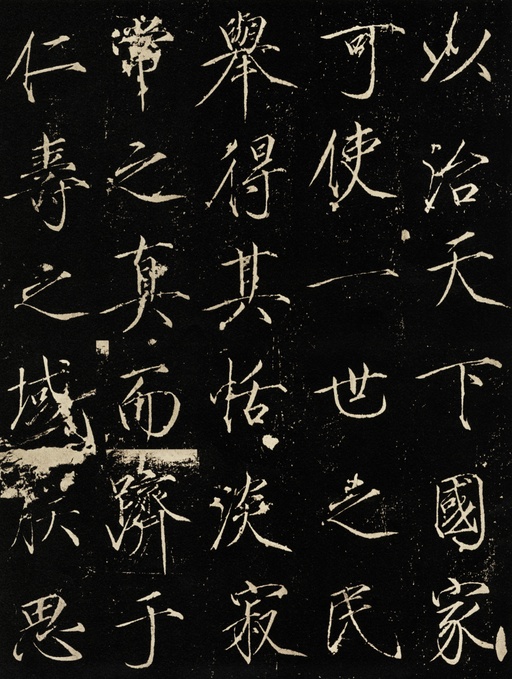 以治天下國家
可使一世之民
舉得其恬淡寂
常之真而躋于
仁壽之域朕思